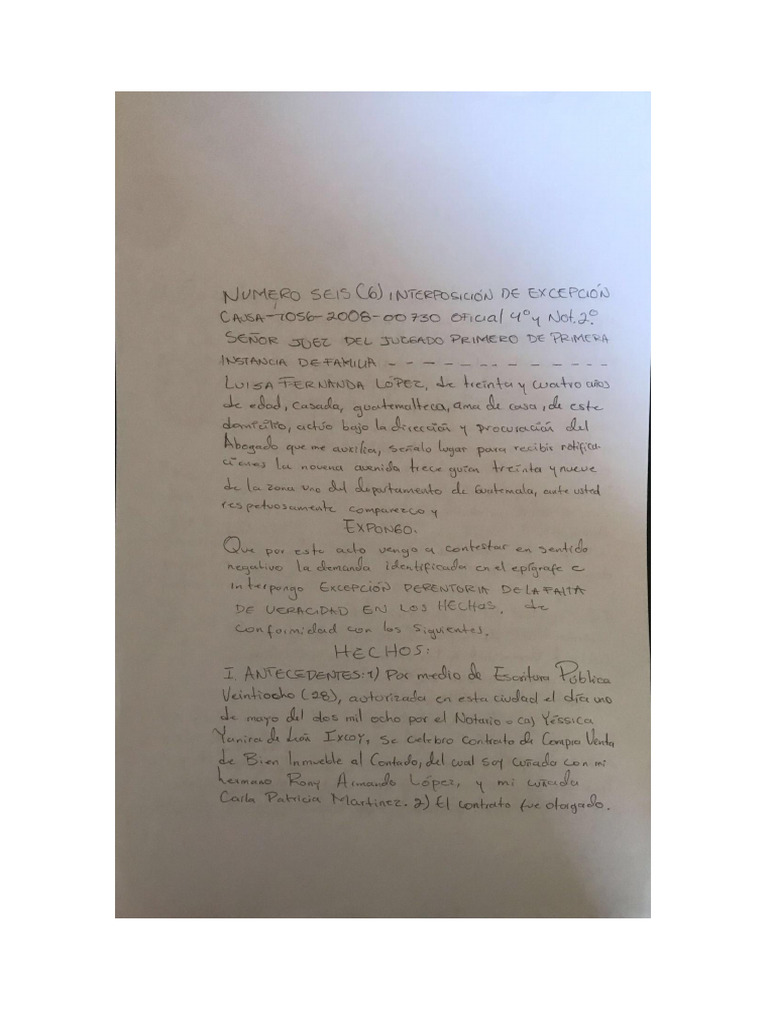 NUMERO SEIS (6) INTERPOSICIÓN DE EXCEPCIÓN
CAUSA-7056-2008-00730 OFICIAL 4º y Not. 2º.
SEÑOR JUEZ DEL JUZGADO PRIMERO DE PRIMERA
INSTANCIA DE FAMILIA - - - - - - - - - - - - -
LUISA FERNANDA LÓPEZ, de treinta y cuatro años
de edad, casada, guatemalteca, ama de casa, de este
domicilio, actúo bajo la dirección y procuración del
Abogado que me auxilia, señalo lugar para recibir notifica-
ciones la novena avenida trece guion treinta y nueve
de la zona uno del departamento de Guatemala, ante usted
respetuosamente comparezco y
EXPONGO.
Que por este acto vengo a contestar en sentido
negativo la demanda identificada en el epígrafe e
interpongo EXCEPCIÓN PERENTORIA DE LA FALTA
DE VERACIDAD EN LOS HECHOS, de
conformidad con los siguientes.
HECHOS:
I. ANTECEDENTES: 1) Por medio de Escritura Pública
Veintiocho (28), autorizada en esta ciudad el día uno
de mayo del dos mil ocho por el Notario Yéssica
Yanira de León Ixcoy, se celebro contrato de Compra Venta
de Bien Inmueble al Contado, del cual soy cuñada con mi
hermano Rony Armando López, y mi cuñada
Carla Patricia Martinez. 2) El contrato fue otorgado.